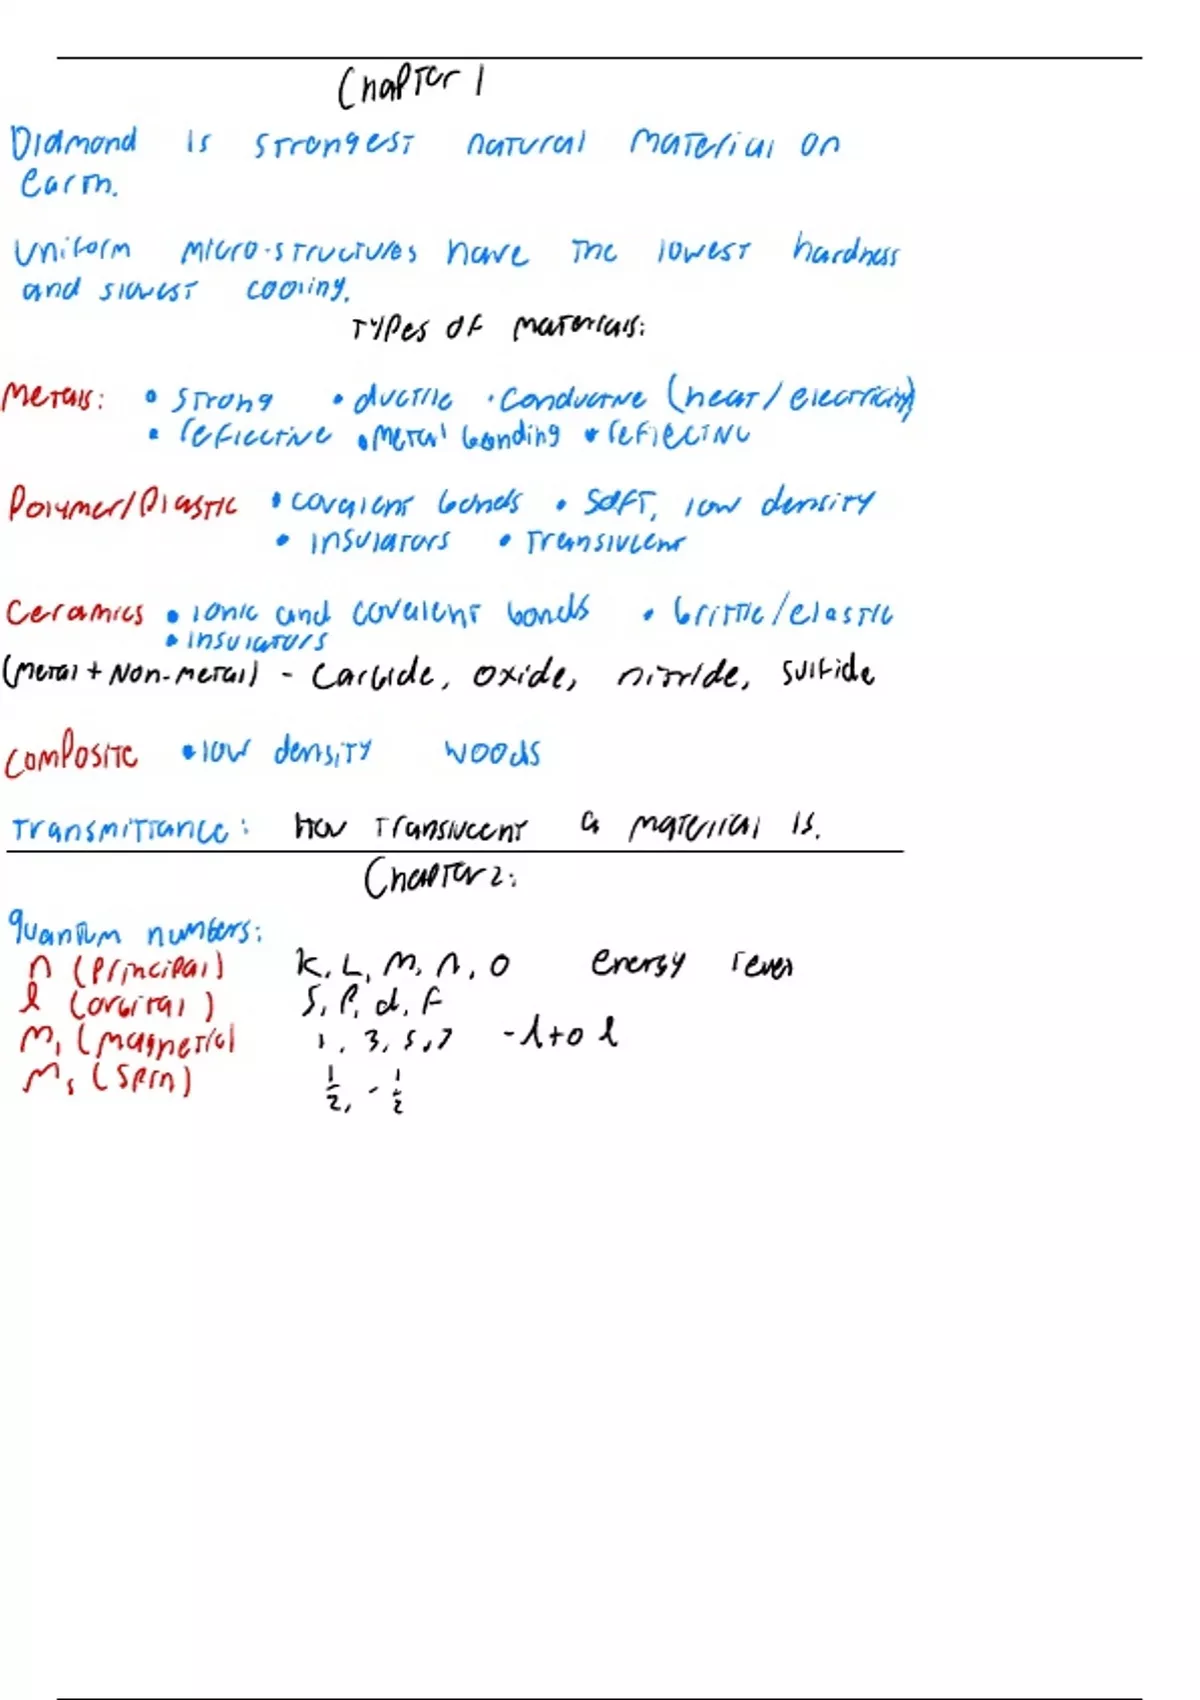 Chapter 1
Diamond is strongest natural material on
earth.
Uniform micro-structures have the lowest hardness
and slowest cooling.
Types of materials:
Metals: • strong • ductile • conductive (heat/electricity)
• reflective • metal bonding • reflective
Polymer/Plastic • covalent bonds • soft, low density
• insulators • translucent
Ceramics • ionic and covalent bonds • brittle/elastic
• insulators
(metal + Non-metal) - Carbide, oxide, nitride, sulfide
Composite • low density woods
Transmittance: How translucent a material is.
Chapter 2:
quantum numbers:
n (principal) K, L, M, N, O energy level
l (orbital) s, p, d, f
m l (magnetic) 1, 3, 5, 7 -l to l
m s (spin) 1/2, -1/2